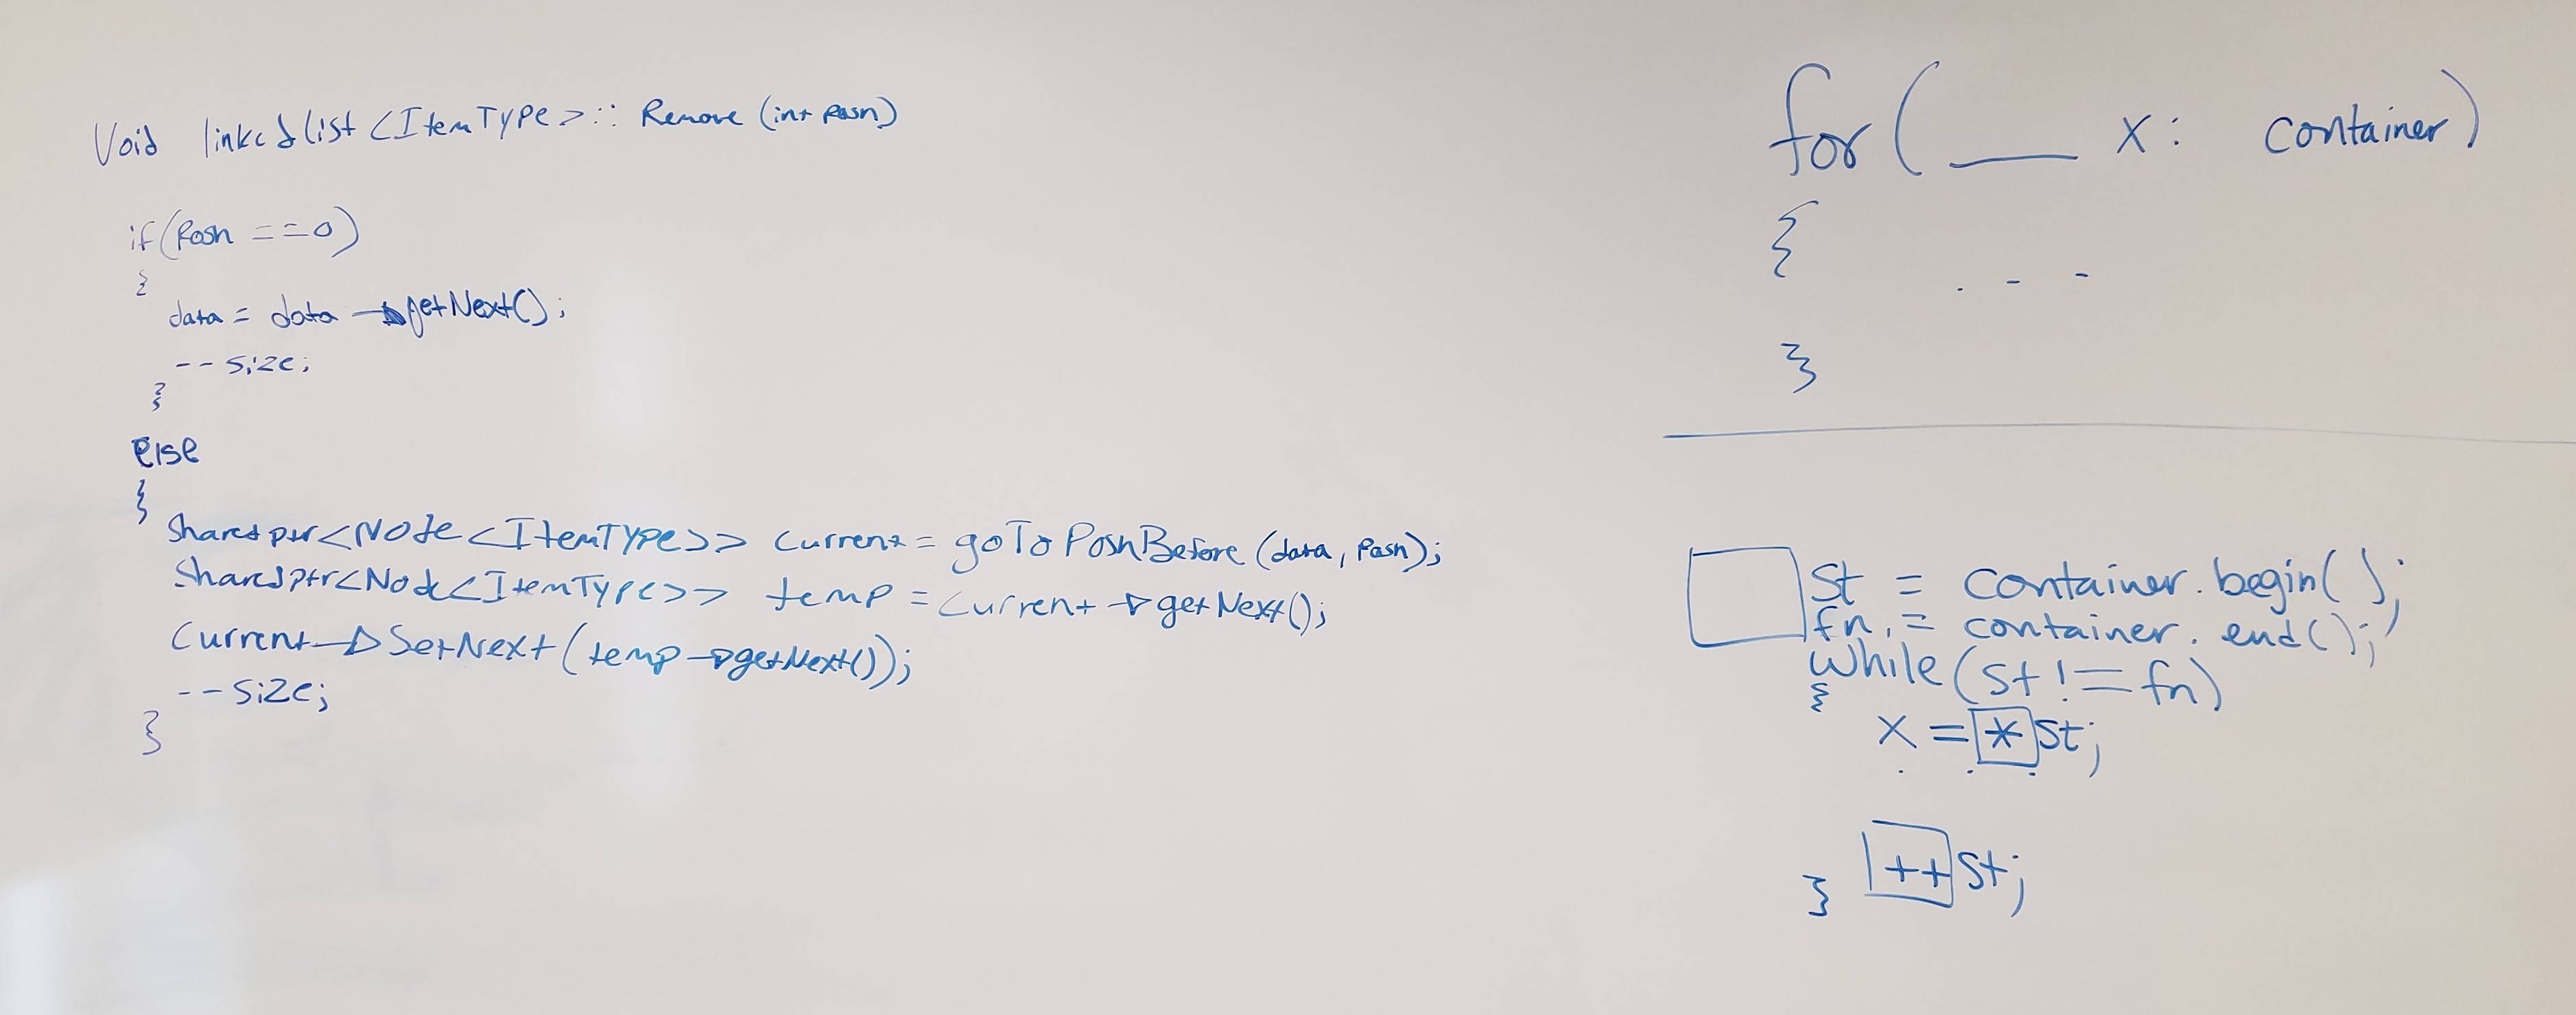 Void linkedlist<ItemType>:: Remove (int Posn)
if(Posn ==0)
{
data = data →getNext();
--size;
}
else
{
Sharedptr<Node<ItemType>> current = goToPosnBefore (data, Posn);
Sharedptr<Node<ItemType>> temp = current → getNext();
Current→SetNext(temp→getNext());
--size;
}
for( ___ x: container)
{
. - -
}
st = container.begin();
fn = container.end();
while(st != fn)
{
x = *st;
. . .
++st;
}